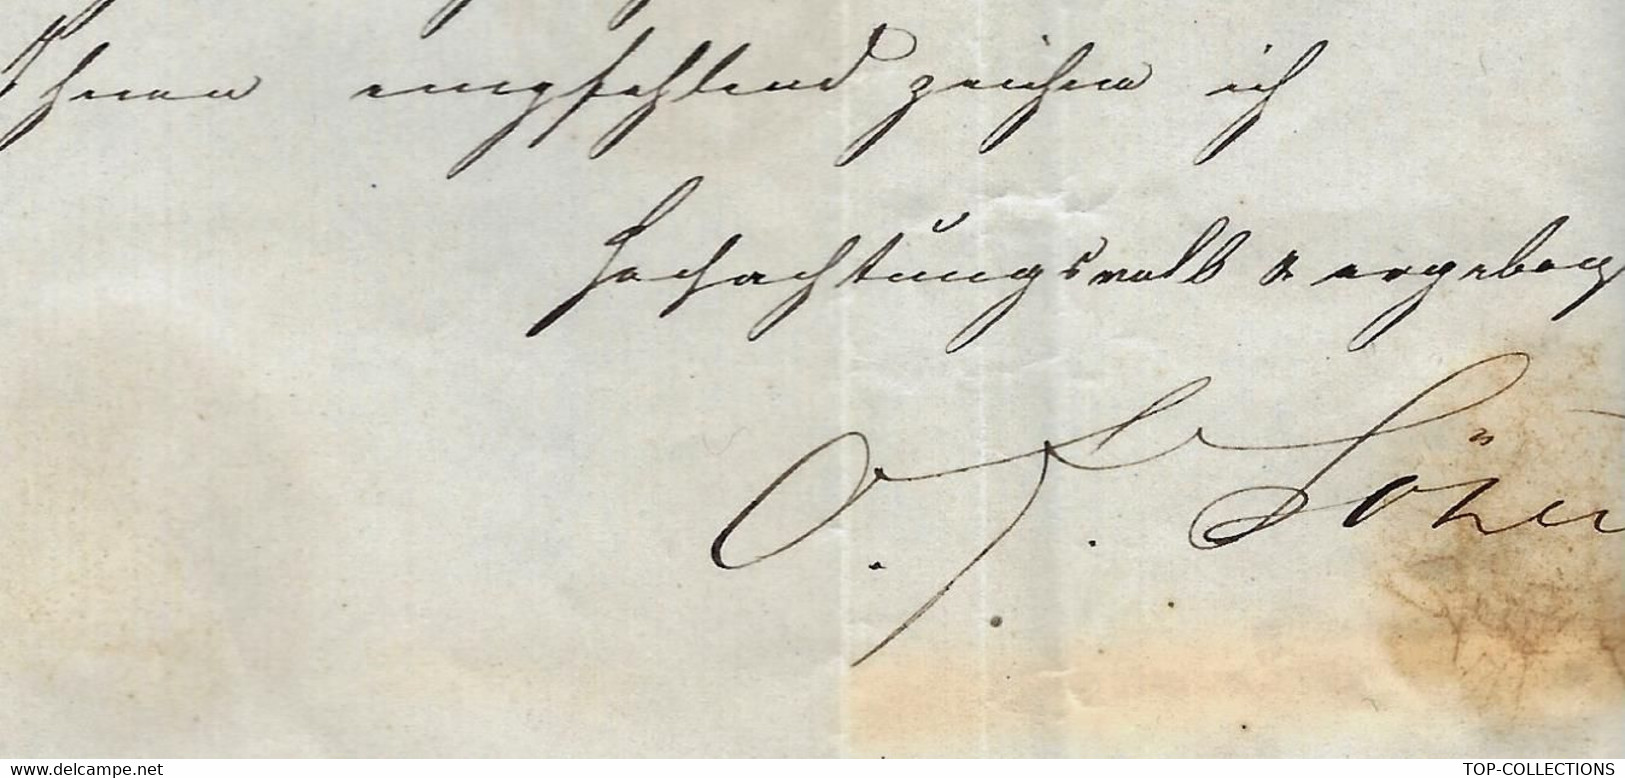 Ihnen empfehlend zeichne ich
Hochachtungsvoll & ergeb
O. F.
www.delcampe.net
TOP-COLLECTIONS